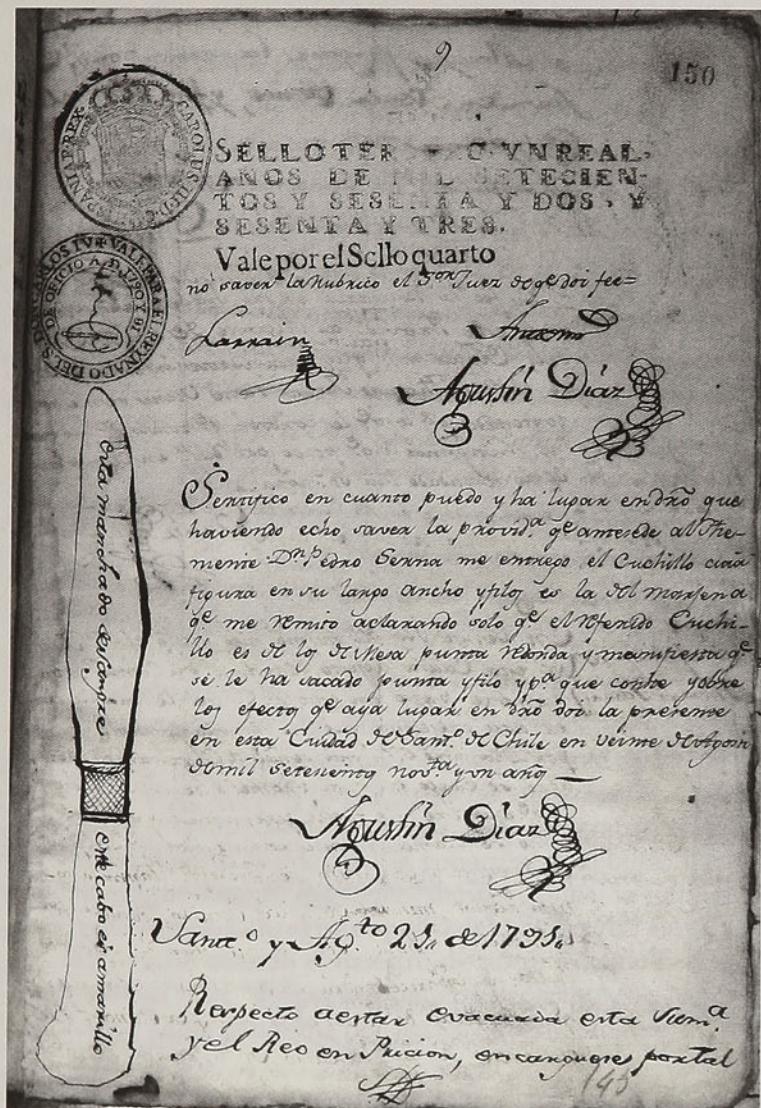 9
150
HISPANIAR. REX. CAROLUS III. D.
SELLO TER C. VN REAL,
AÑOS DE MIL SETECIEN-
TOS Y SESENTA Y DOS, Y
SESENTA Y TRES.
Vale por el Sello quarto
VALE PARA EL REYNADO DEL S. DON CARLOS IV
DE OFICIO A. D. 1790 Y 91
no saver la Rubrico el Sor Juez de qe doi fee=
Larrain
Antemi
Agustín Díaz
esta manchado de sangre
este cabo es amarillo
Sertifico en cuanto puedo y ha lugar en dro que
haviendo echo saver la provida. qe antesede al The-
niente Dn. Pedro Serna me entrego el Cuchillo cuia
figura en su largo ancho y filos es la del marjen a
qe me remito aclarando solo qe el referido Cuchi-
llo es de los de Mesa punta redonda y manifiesta qe
se le ha sacado punta y filo y pa. que conste y obre
los efectos qe aya lugar en dro doi la presente
en esta Ciudad de Santo. de Chile en veinte de Agosto
de mil setesientos novta. y un año
Agustín Díaz
Santo. y Agto 21,, de 1791,,
Respecto a estar evacuada esta Suma.
y el Reo en Pricion, encarguese por tal
145